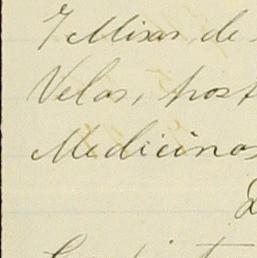 7 Misas de
Velas, post
Medicinas